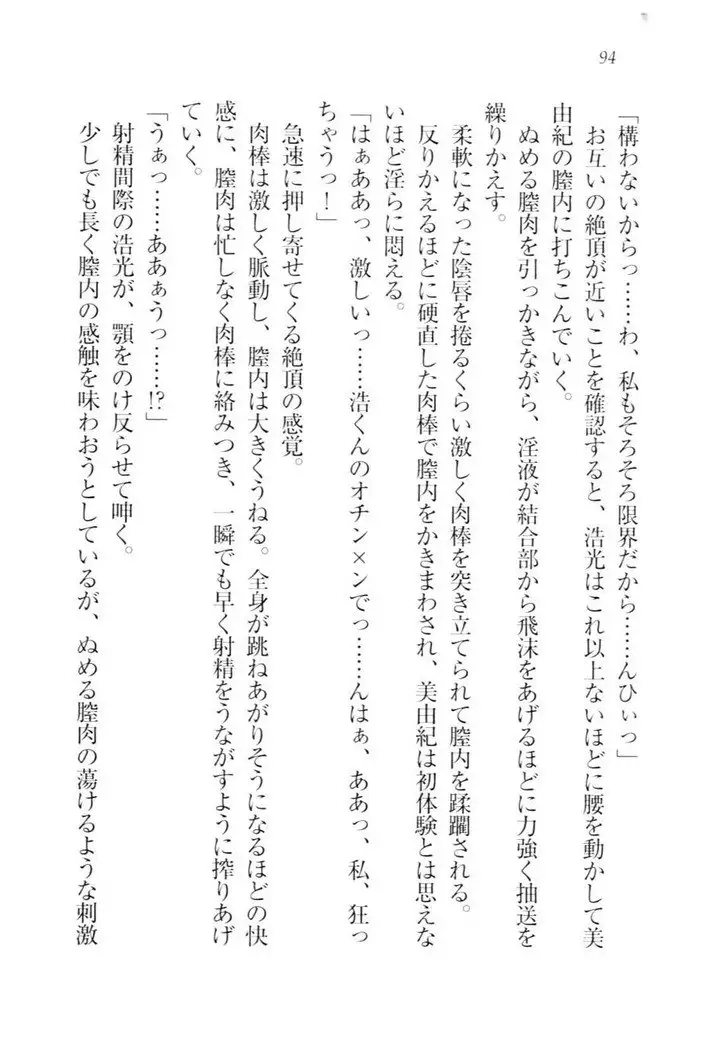 94
「構わないからっ……わ、私もそろそろ限界だから……んひぃっ」
お互いの絶頂が近いことを確認すると、浩光はこれ以上ないほどに腰を動かして美
由紀の膣内に打ちこんでいく。
ぬめる膣肉を引っかきながら、淫液が結合部から飛沫をあげるほどに力強く抽送を
繰りかえす。
柔軟になった陰唇を捲るくらい激しく肉棒を突き立てられて膣内を蹂躙される。
反りかえるほどに硬直した肉棒で膣内をかきまわされ、美由紀は初体験とは思えな
いほど淫らに悶える。
「はぁああっ、激しいっ……浩くんのオチン×ンでっ……んはぁ、ああっ、私、狂っ
ちゃうっ！」
急速に押し寄せてくる絶頂の感覚。
肉棒は激しく脈動し、膣内は大きくうねる。全身が跳ねあがりそうになるほどの快
感に、膣肉は忙しなく肉棒に絡みつき、一瞬でも早く射精をうながすように搾りあげ
ていく。
「うぁっ……ああぁうっ……⁉」
射精間際の浩光が、顎をのけ反らせて呻く。
少しでも長く膣内の感触を味わおうとしているが、ぬめる膣肉の蕩けるような刺激